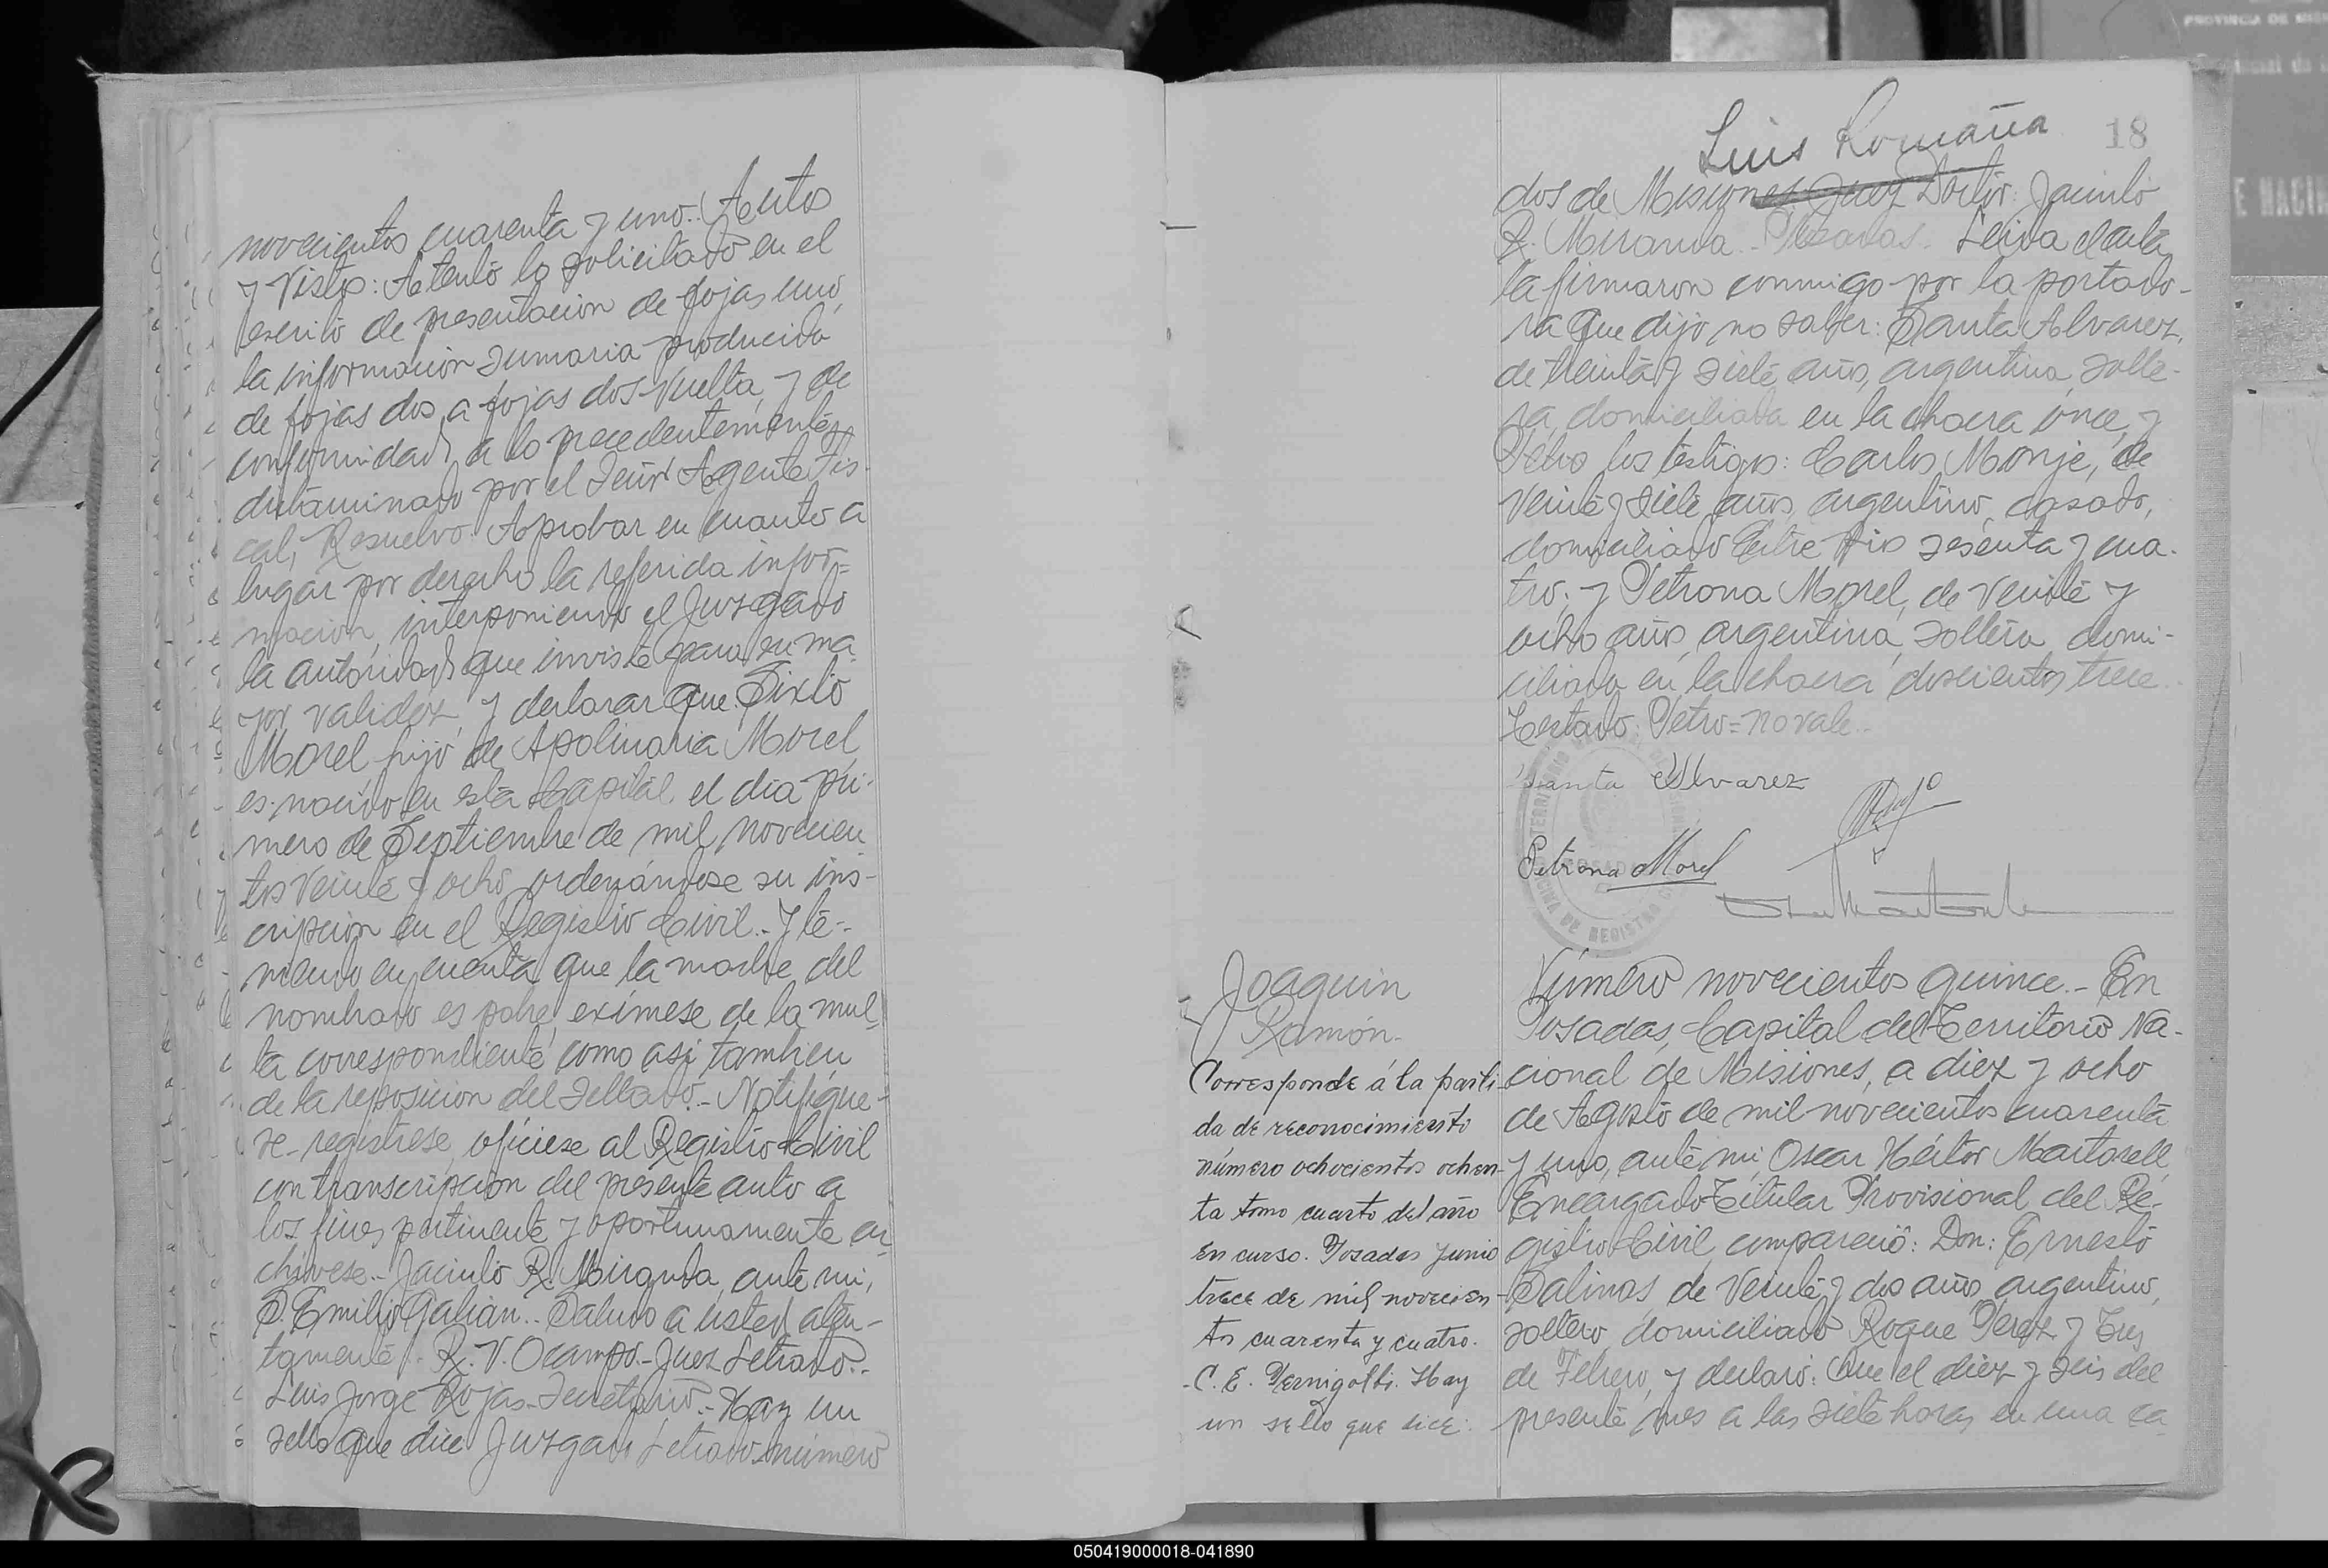 novecientos cuarenta y uno.. Autos
y Visto: Atento lo solicitado en el
escrito de presentación de fojas uno,
la información sumaria producida
de fojas dos a fojas dos vuelta, y de
conformidad a lo precedentemente
dictaminado por el Señor Agente Fis-
cal, Resuelvo: Aprobar en cuanto a
lugar por derecho la referida infor=
mación, interponiendo el Juzgado
la autoridad que inviste para su ma-
yor validéz, y declarar que Sixto
Morel hijo de Apolinaria Morel,
es nacido en esta Capital, el día pri-
mero de Septiembre de mil novecien
tos veinte y ocho ordenándose su ins-
cripción en el Registro Civil.- Y te-
niendo en cuenta que la madre del
nombrado es pobre, exímese de la mul
ta correspondiente como así también
de la reposición del sellado.- Notifíque-
se- regístrese, ofíciese al Registro Civil
con transcripción del presente auto a
los fines pertinente y oportunamente ar
chívese.- Jacinto R. Miranda, ante mí,
S. Emilio Galian.. Saludo a usted aten-
tamente.- R. V. Ocampo.- Juez Letrado.-
Luis Jorge Rojas- Secretario.- Hay un
sello que dice Juzgado Letrado número
Luis Romaña
18
dos de Misiones Juez Doctor: Jacinto
R. Miranda.- Posadas.. Leída el acta
la firmaron conmigo por la portado-
ra que dijo no saber: Santa Alvarez,
de treinta y siete años, argentina, solte-
ra, domiciliada en la chacra once, y
los testigos: Carlos Monje, de
veinte y siete años, argentino, casado,
domiciliado Entre Rio sesenta y cua-
tro; y Petrona Morel, de veinte y
ocho años, argentina, soltera domi-
ciliada en la chacra doscientos trece..
Testado: Petro=no vale.-
Santa Alvarez
Petrona Morel
Joaquin
Ramón.
Corresponde á la parti-
da de reconocimiento
número ochocientos ochen-
ta tomo cuarto del año
en curso. Posadas Junio
trece de mil novecien-
tos cuarenta y cuatro.
-C. E. Pernigotti. Hay
un sello que dice:
Número novecientos quince.- En
Posadas, Capital del Territorio Na-
cional de Misiones, a diez y ocho
de Agosto de mil novecientos cuarenta
y uno, ante mi, Oscar Héctor Martorell
Encargado Titular Provisional del Re-
gistro Civil, compareció: Don: Ernesto
Salinas, de veinte y dos años, argentino,
soltero, domiciliado Roque Perez y Tres
de Febrero, y declaró: Que el diez y seis del
presente mes a las siete horas, en una ca
050419000018-041890